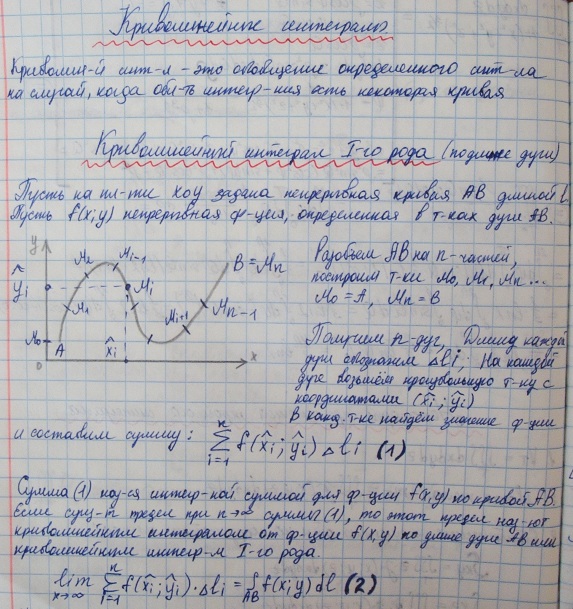 Криволинейные интегралы
Криволин-й инт-л - это обобщение определенного инт-ла
на случай, когда обл-ть интегр-ния есть некоторая кривая
Криволинейный интеграл I-го рода (по длине дуги)
Пусть на пл-ти xoy задана непрерывная кривая AB длиной l.
Пусть f(x;y) непрерывная ф-ция, определенная в т-ках дуги AB.
y
M₂ Mi-1
ŷi Mi B = Mn
M₁ Mi+1 Mn-1
M₀ A
0 x̂i x
Разобьем AB на n-частей,
построим т-ки M₀, M₁, Mn ...
M₀ = A, Mn = B
Получием n-дуг, Длину каждой
дуги обозначим Δli; На каждой
дуге возьмём произвольную т-ку с
координатами (x̂i; ŷi)
В кажд. т-ке найдём значение ф-ции
и составим сумму: n∑i=1 f(x̂i; ŷi) Δli (1)
Сумма (1) наз-ся интегр-ной суммой для ф-ции f(x,y) по кривой AB.
Если сущ-т предел при n→∞ суммы (1), то этот предел наз-ют
криволинейным интегралом от ф-ции f(x,y) по длине дуги AB или
криволинейным интегр-м I-го рода.
lim x→∞ n∑i=1 f(x̂i; ŷi)·Δli = ∫AB f(x;y)dl (2)